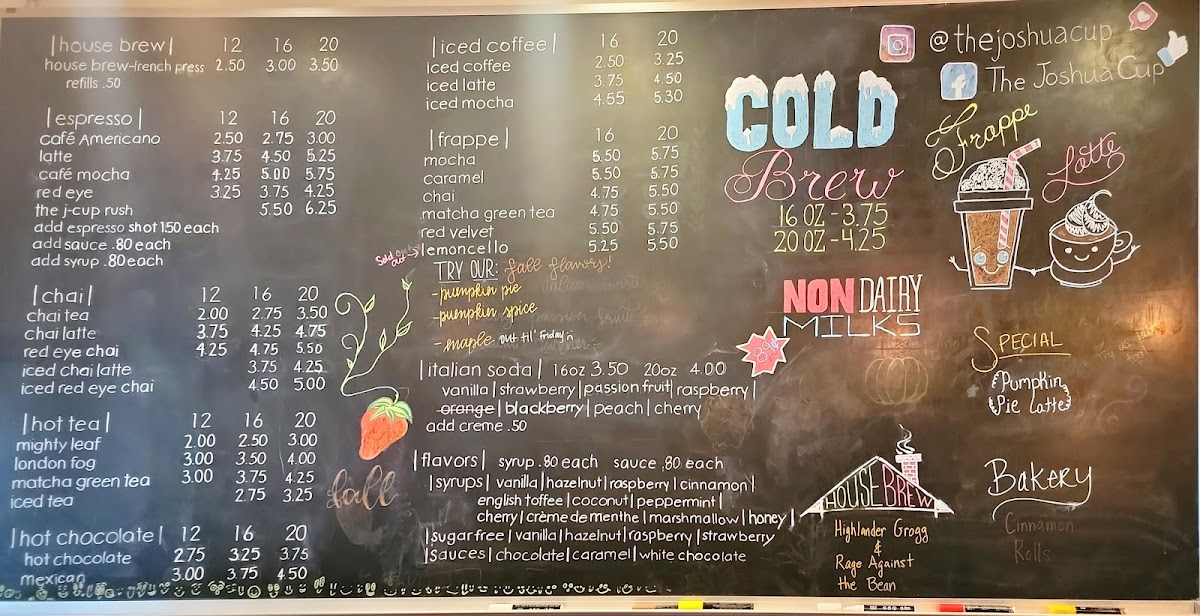 |house brew| 12 16 20
house brew-french press 2.50 3.00 3.50
refills .50
|espresso| 12 16 20
café Americano 2.50 2.75 3.00
latte 3.75 4.50 5.25
café mocha 4.25 5.00 5.75
red eye 3.25 3.75 4.25
the j-cup rush 5.50 6.25
add espresso shot 1.50 each
add sauce .80 each
add syrup .80 each
|chai| 12 16 20
chai tea 2.00 2.75 3.50
chai latte 3.75 4.25 4.75
red eye chai 4.25 4.75 5.50
iced chai latte 3.75 4.25
iced red eye chai 4.50 5.00
|hot tea| 12 16 20
mighty leaf 2.00 2.50 3.00
london fog 3.00 3.50 4.00
matcha green tea 3.00 3.75 4.25
iced tea 2.75 3.25
|hot chocolate| 12 16 20
hot chocolate 2.75 3.25 3.75
mexican 3.00 3.75 4.50
fall
|iced coffee| 16 20
iced coffee 2.50 3.25
iced latte 3.75 4.50
iced mocha 4.55 5.30
|frappe| 16 20
mocha 5.50 5.75
caramel 5.50 5.75
chai 4.75 5.50
matcha green tea 4.75 5.50
red velvet 5.50 5.75
lemoncello 5.25 5.50
Sold out
TRY OUR: fall flavors!
-pumpkin pie
-pumpkin spice
-maple out til' Friday
|italian soda| 16oz 3.50 20oz 4.00
vanilla|strawberry|passion fruit|raspberry|
orange|blackberry|peach|cherry
add creme .50
|flavors| syrup .80 each sauce .80 each
|syrups|vanilla|hazelnut|raspberry|cinnamon|
english toffee|coconut|peppermint|
cherry|crème de menthe|marshmallow|honey|
|sugar free|vanilla|hazelnut|raspberry|strawberry
|sauces|chocolate|caramel|white chocolate
COLD
Brew
16 OZ - 3.75
20 OZ - 4.25
NON DAIRY
MILKS
89¢
HOUSE BREW
Highlander Grogg
&
Rage Against
the Bean
@thejoshuacup
The Joshua Cup
Frappe
Latte
SPECIAL
Pumpkin
Pie Latte
BAKERY
Cinnamon
Rolls